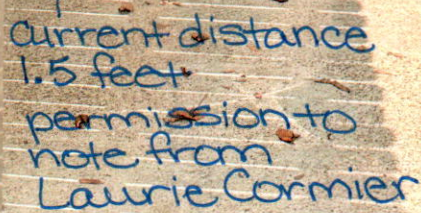 current distance
1.5 feet
permission to
note from
Laurie Cormier